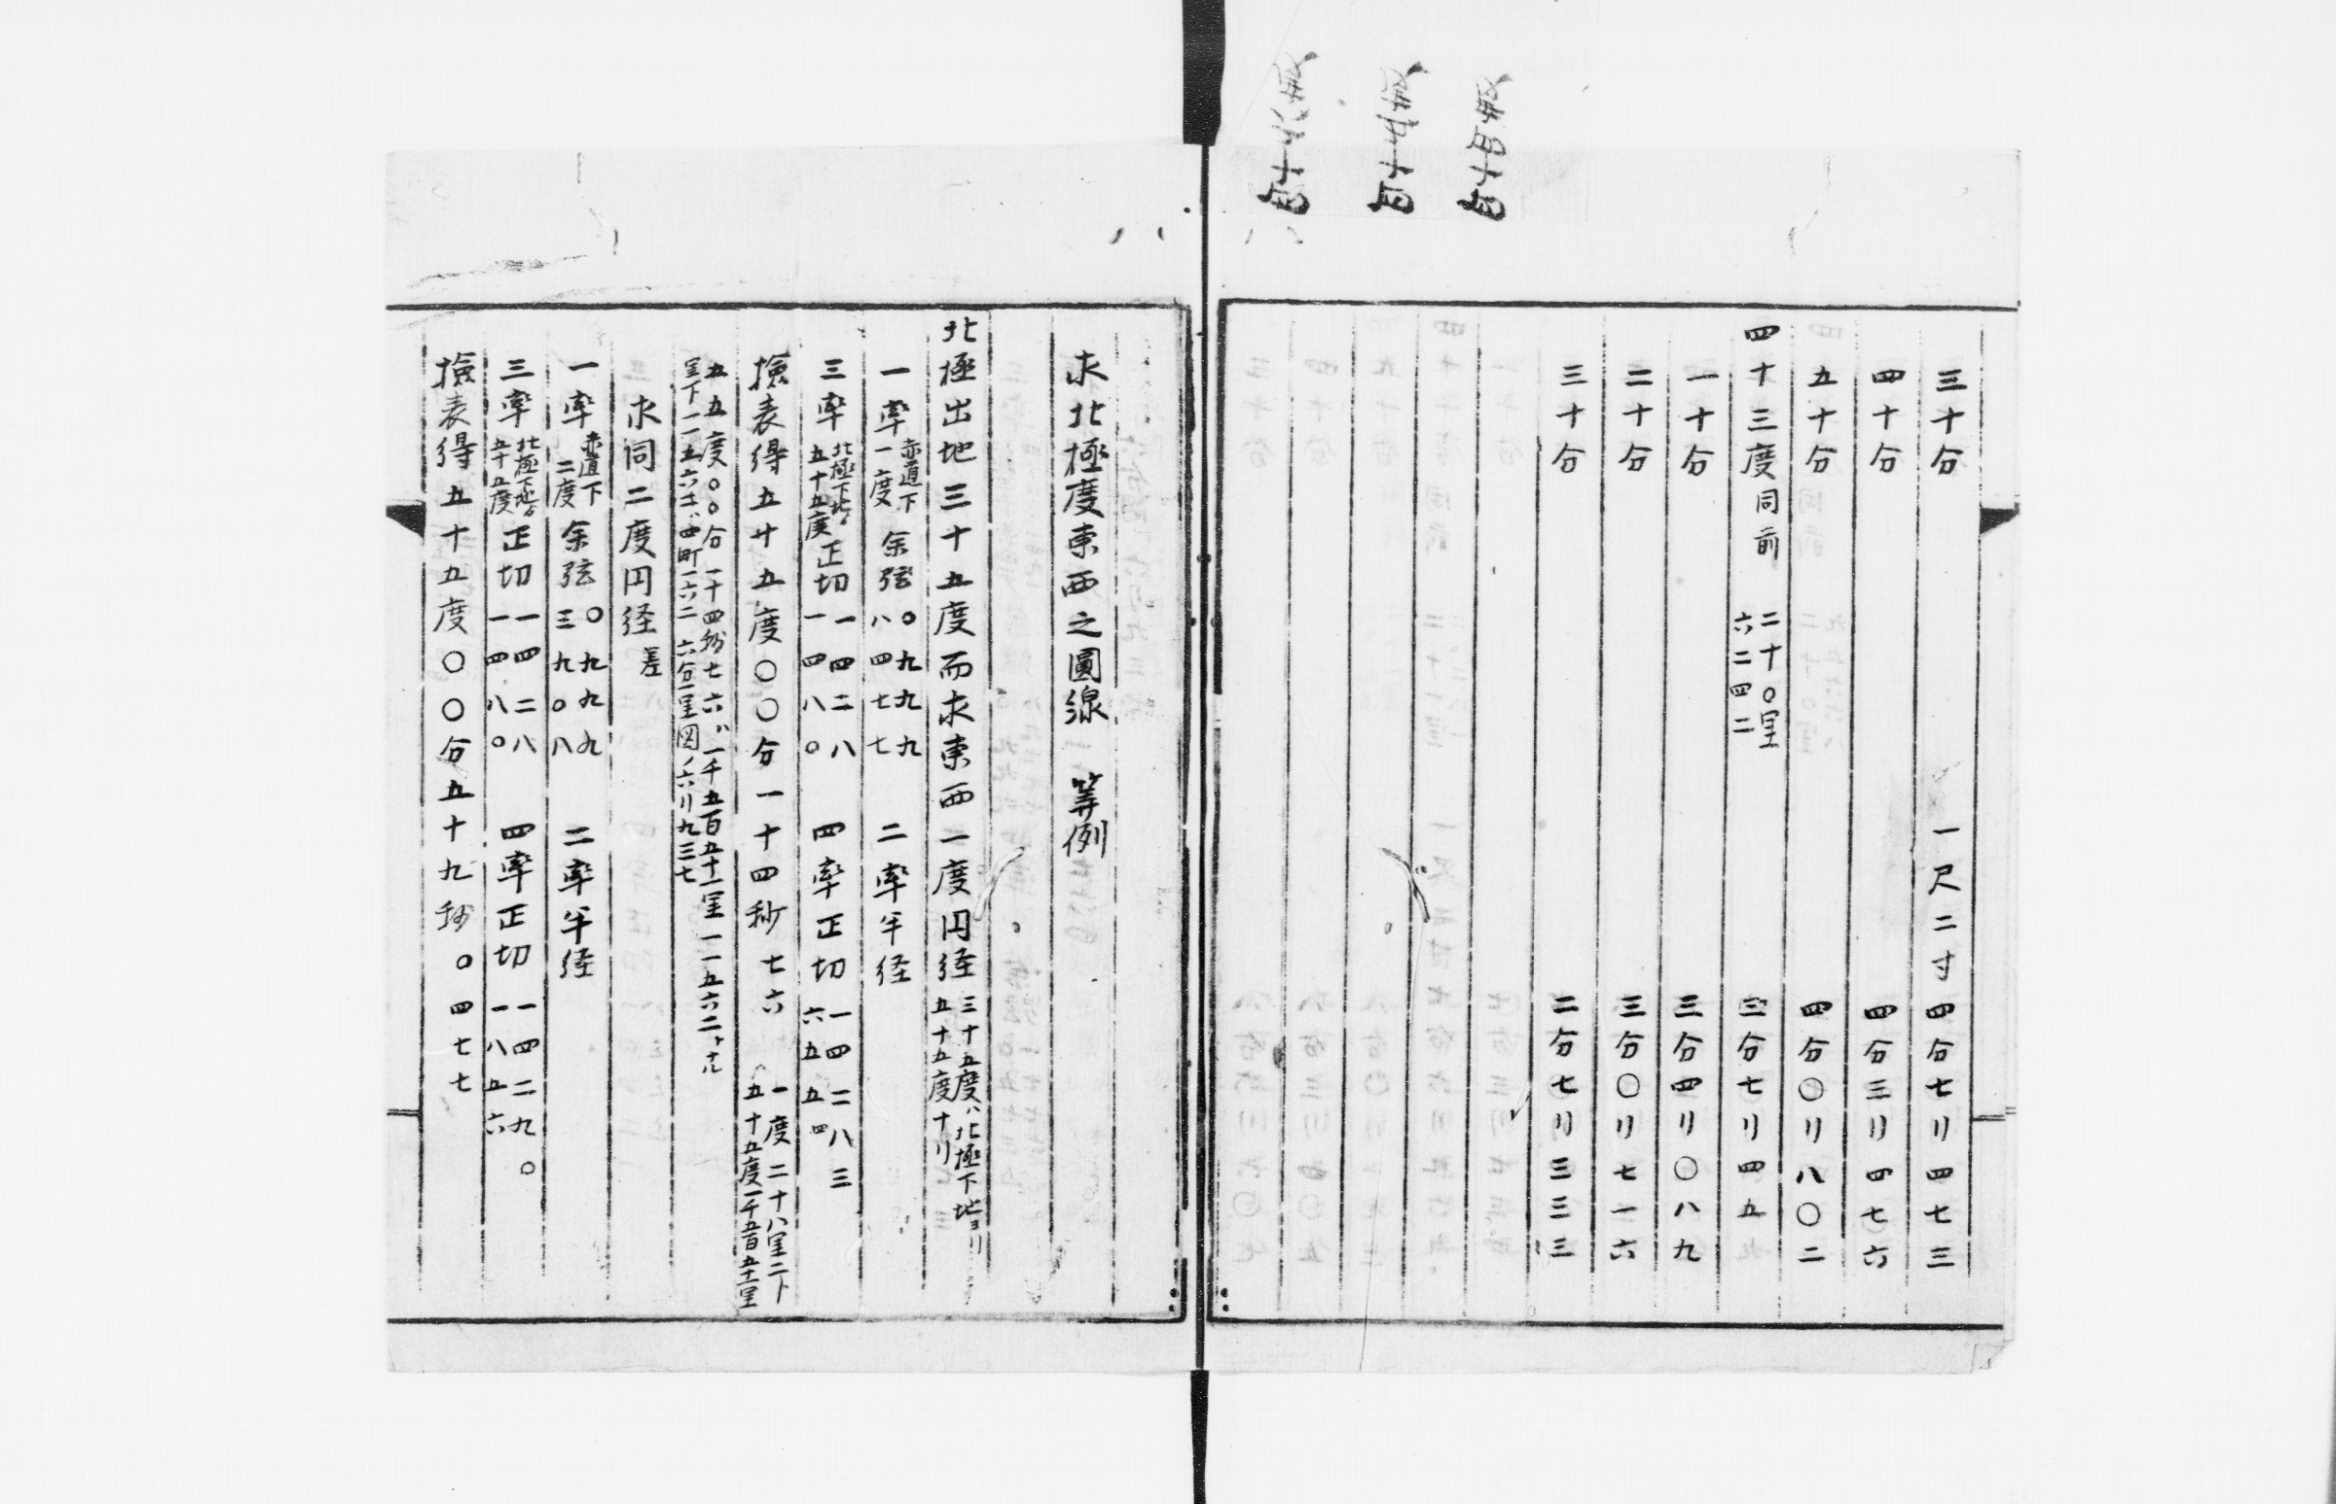 三十分 一尺二寸四分七リ四七三
四十分 四分三リ四七六
五十分 四分〇リ八〇二
四十三度同前 二十〇里六二四二 三分七リ四五
一十分 三分四リ〇八九
二十分 三分〇リ七一六
三十分 二分七リ三三三
求北極度東西之圓線 筭例
北極出地三十五度而求東西一度円径 三十五度ハ北極下地ヨリ五十五度ナリ
一率 赤道下一度 余弦 〇九九九八四七七 二率半径
三率 北極下地 五十五度 正切 一一四二八四八〇 四率正切 一四二八三六五五四
撿表得五十五度〇〇分一十四秒七六 一度二十八里二下 五十五度一千五百五十一里
五五度〇〇分一十四秒七六ハ一千五百五十一里一一五六二トナル
里下一一五六二ハ四町一六二 六分一里図ノ六リ九三七
求同二度円径差
一率 赤道下二度 余弦 〇九九九三九〇八 二率半径
三率 北極下地 五十五度 正切 一四二八一四八〇 四率正切 一四二九〇一八五六
撿表得五十五度〇〇分五十九秒〇四七七